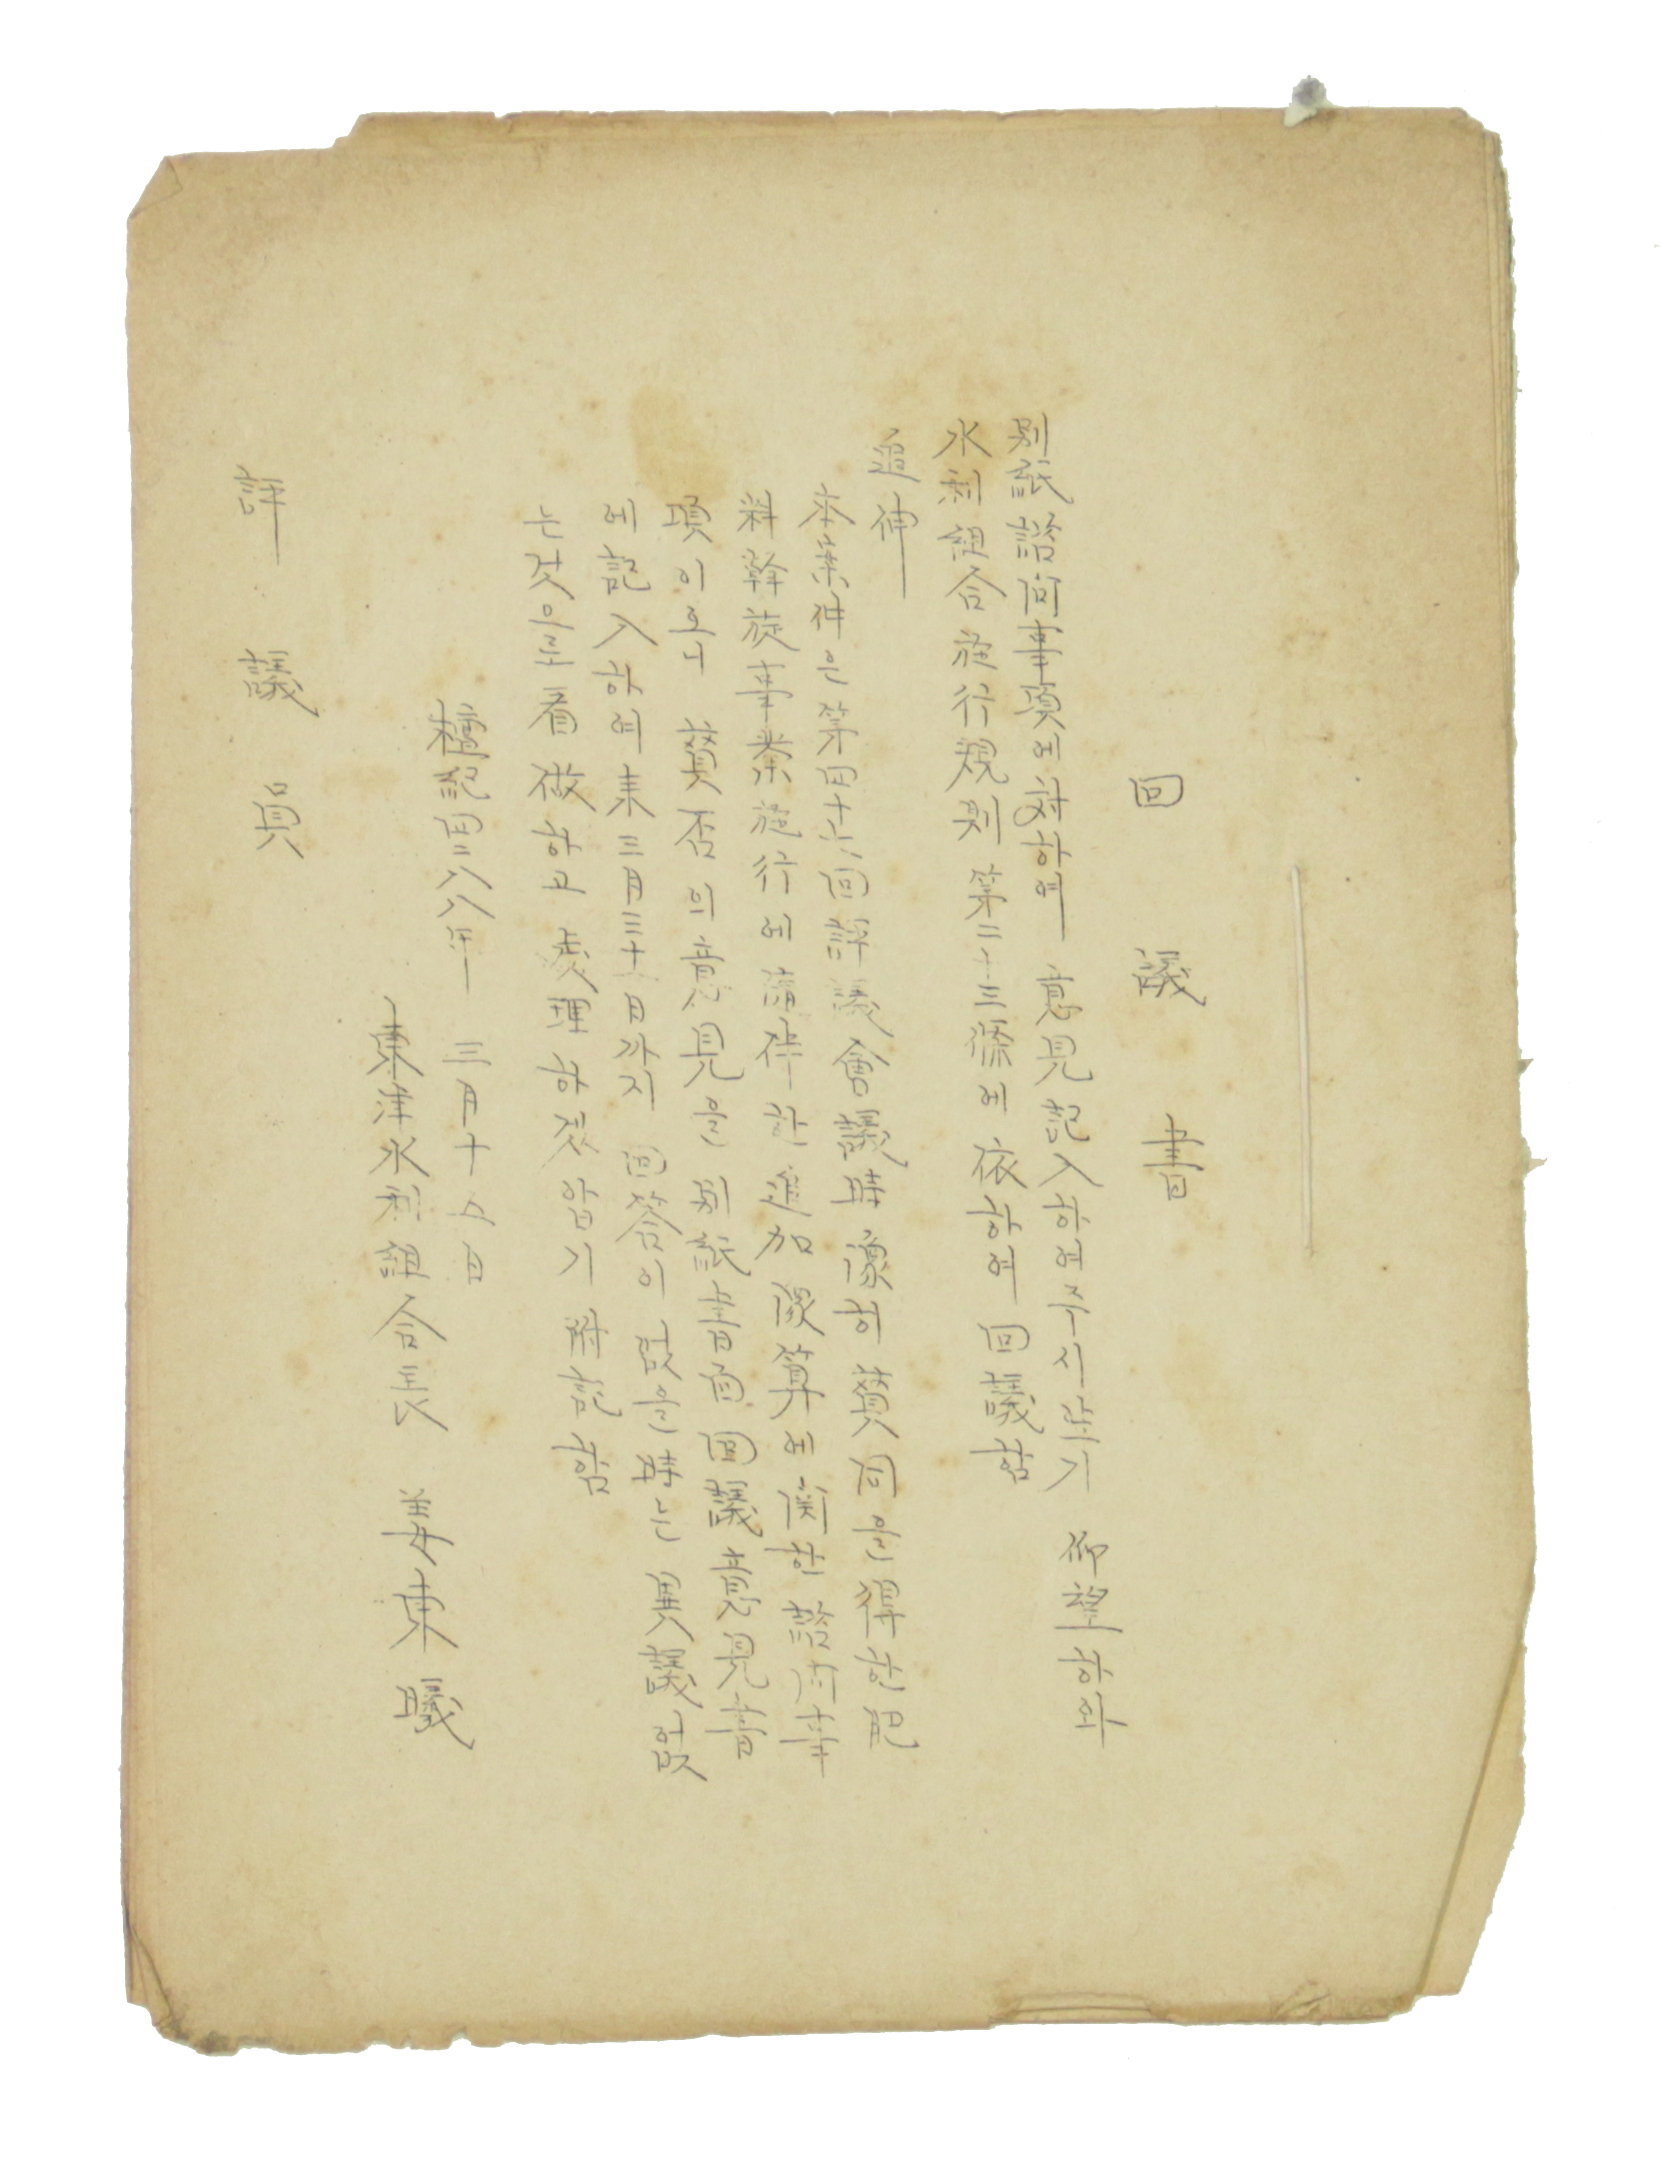 回議書
別紙諮問事項에 対하여 意見記入하여주시압기 仰望하와
水利組合施行規則 第二十三條에 依하여 回議함
追伸
本案件은 第四十六回評議會議時 豫히 賛同을 得한 肥
料斡旋事業施行에 隨伴한 追加豫算에 関한 諮問事
項이오니 賛否의 意見을 別紙書面回議意見書
에 記入하여 来三月三十日까지 回答이 없을 時는 異議없
는것으로 看做하고 處理하겟압기 附記함
檀記四二八八年 三月十五日
東津水利組合長 姜東曦
評議員